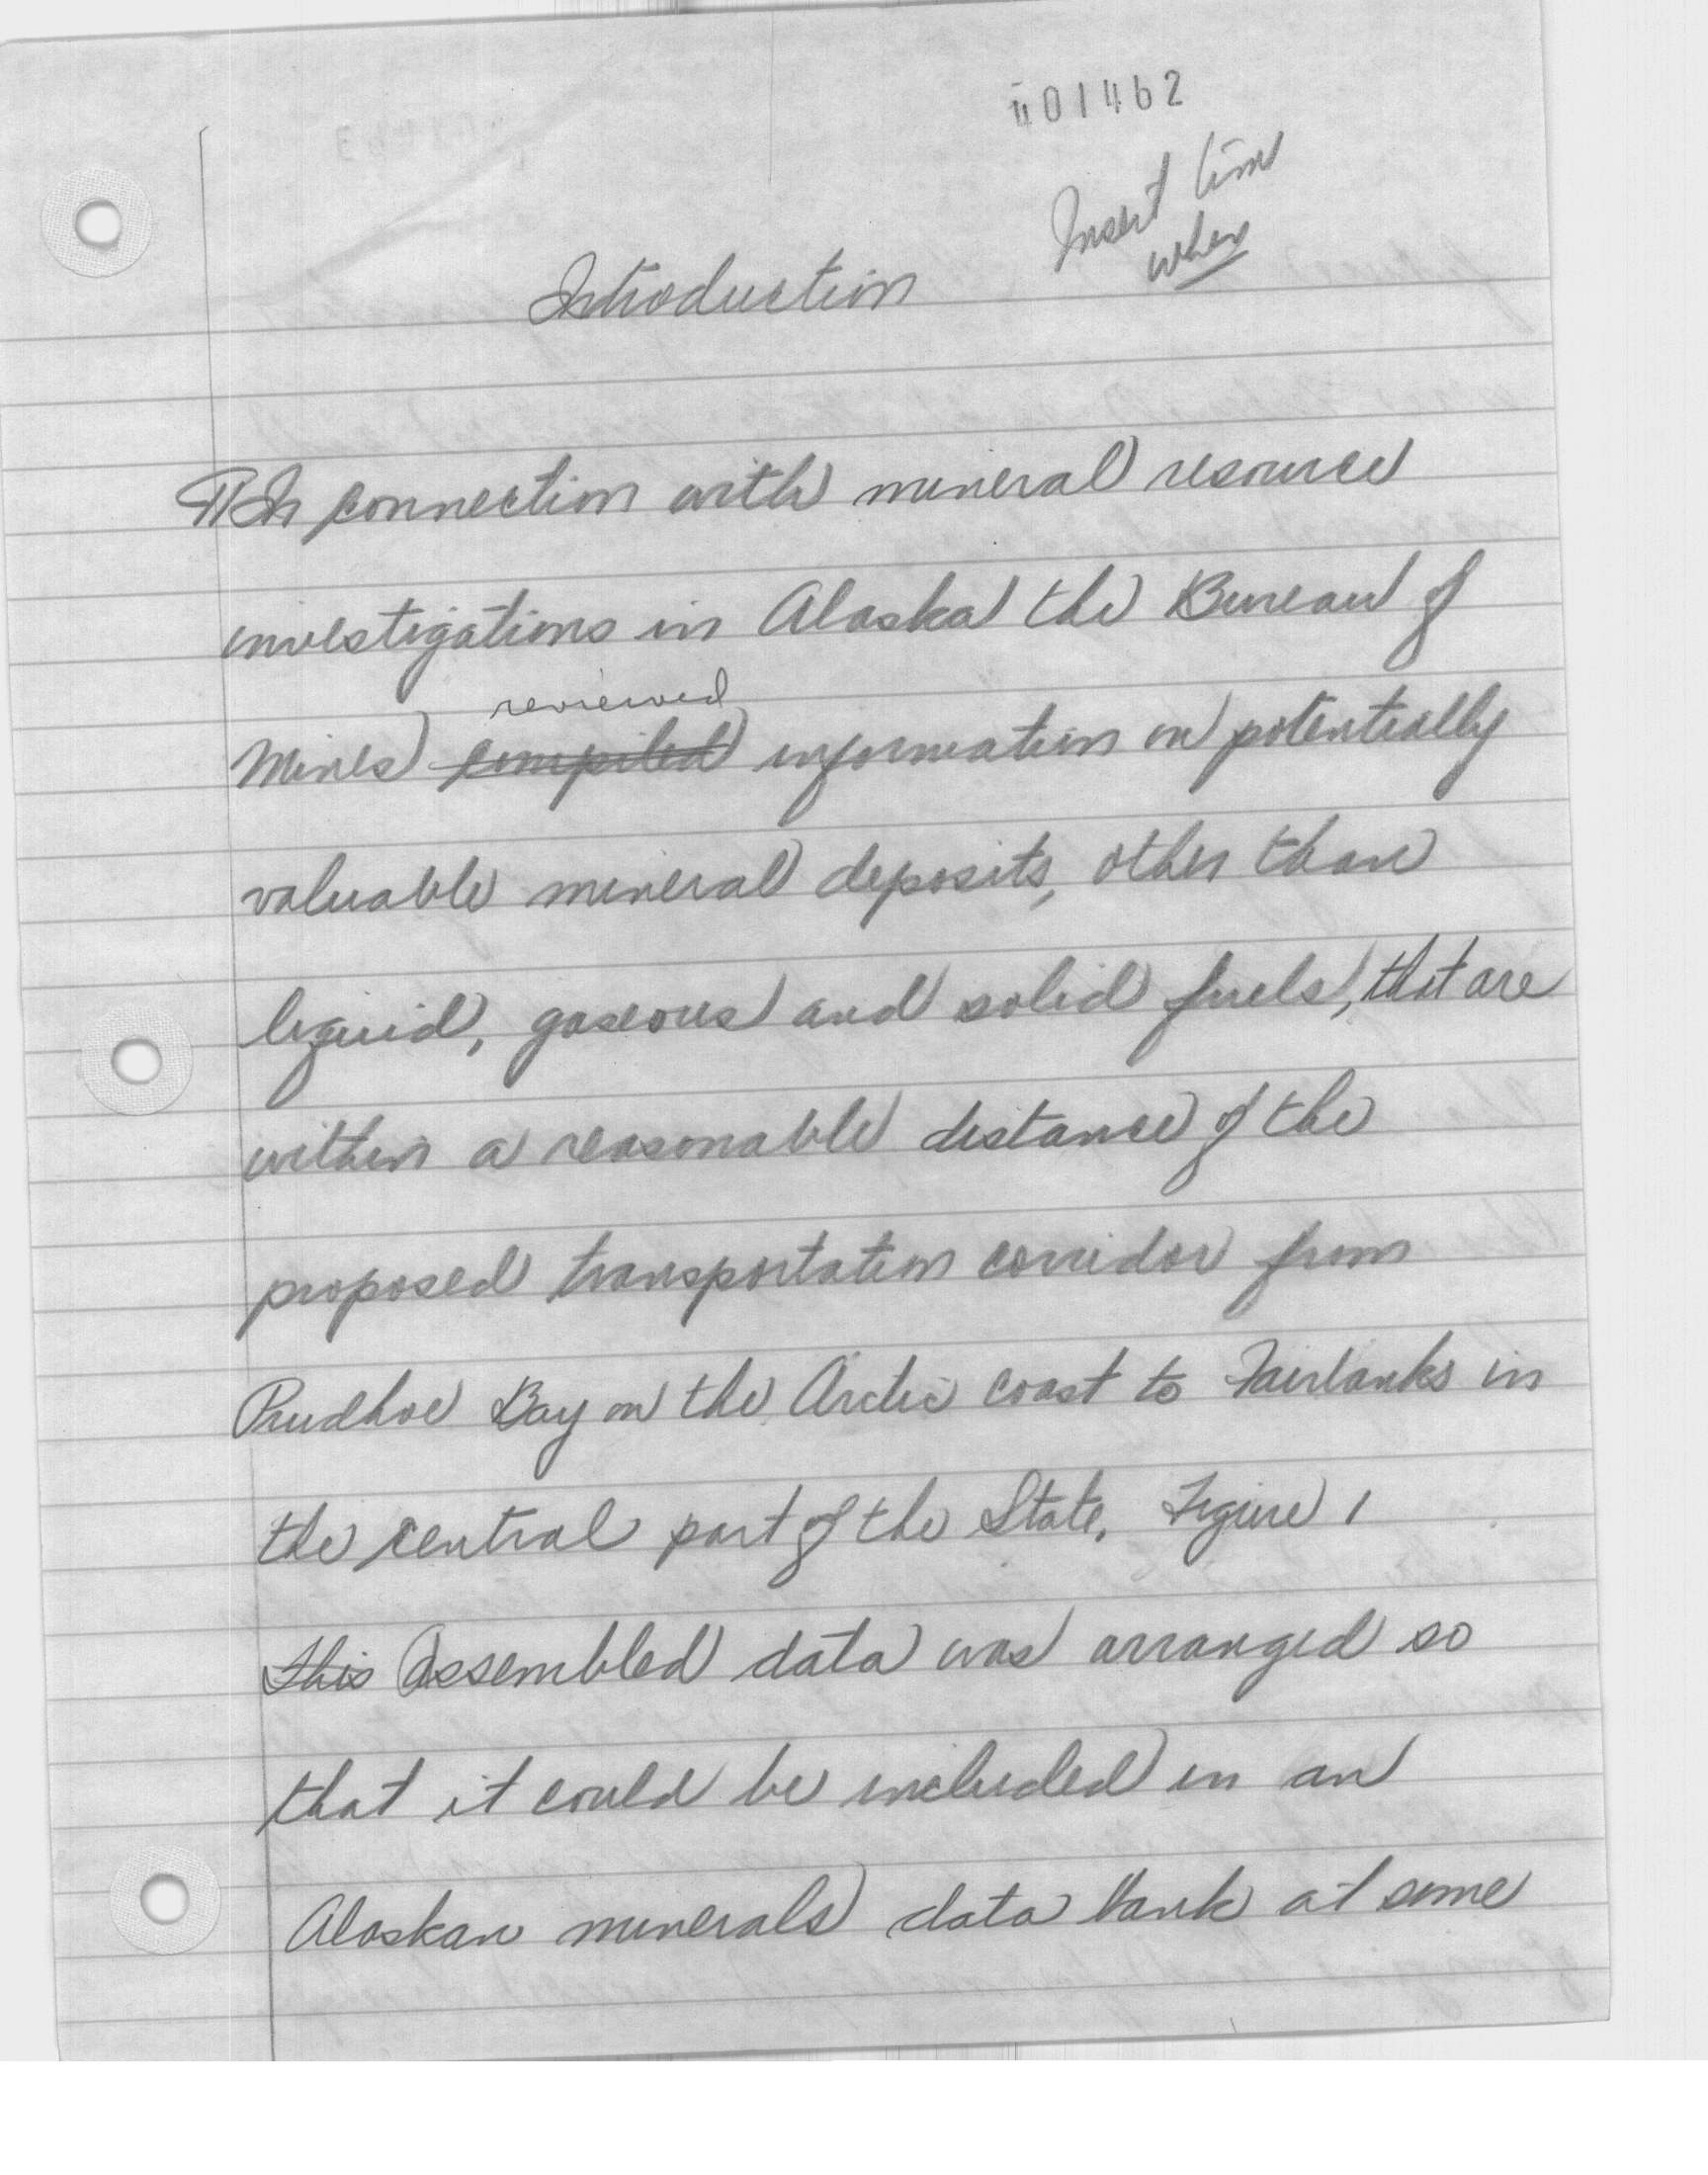 001462
Insert time
when
Introduction
¶ In connection with mineral resource
investigations in Alaska the Bureau of
reviewed
Mines compiled information on potentially
valuable mineral deposits, other than
liquid, gaseous and solid fuels, that are
within a reasonable distance of the
proposed transportation corridor from
Prudhoe Bay on the Arctic coast to Fairbanks in
the central part of the State. Figure 1
This Assembled data was arranged so
that it could be included in an
Alaskan minerals data bank at some